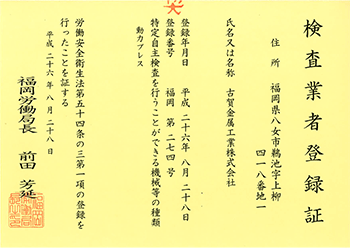 検査業者登録証
住所　福岡県八女市鵜池字上柳
四一八番地一
氏名又は名称　古賀金属工業株式会社
登録年月日　平成二十六年八月二十八日
登録番号　福岡　第二七四号
特定自主検査を行うことができる機械等の種類
動力プレス
労働安全衛生法第五十四条の三第一項の登録を
行ったことを証する
平成二十六年八月二十八日
福岡労働局長　前田芳延